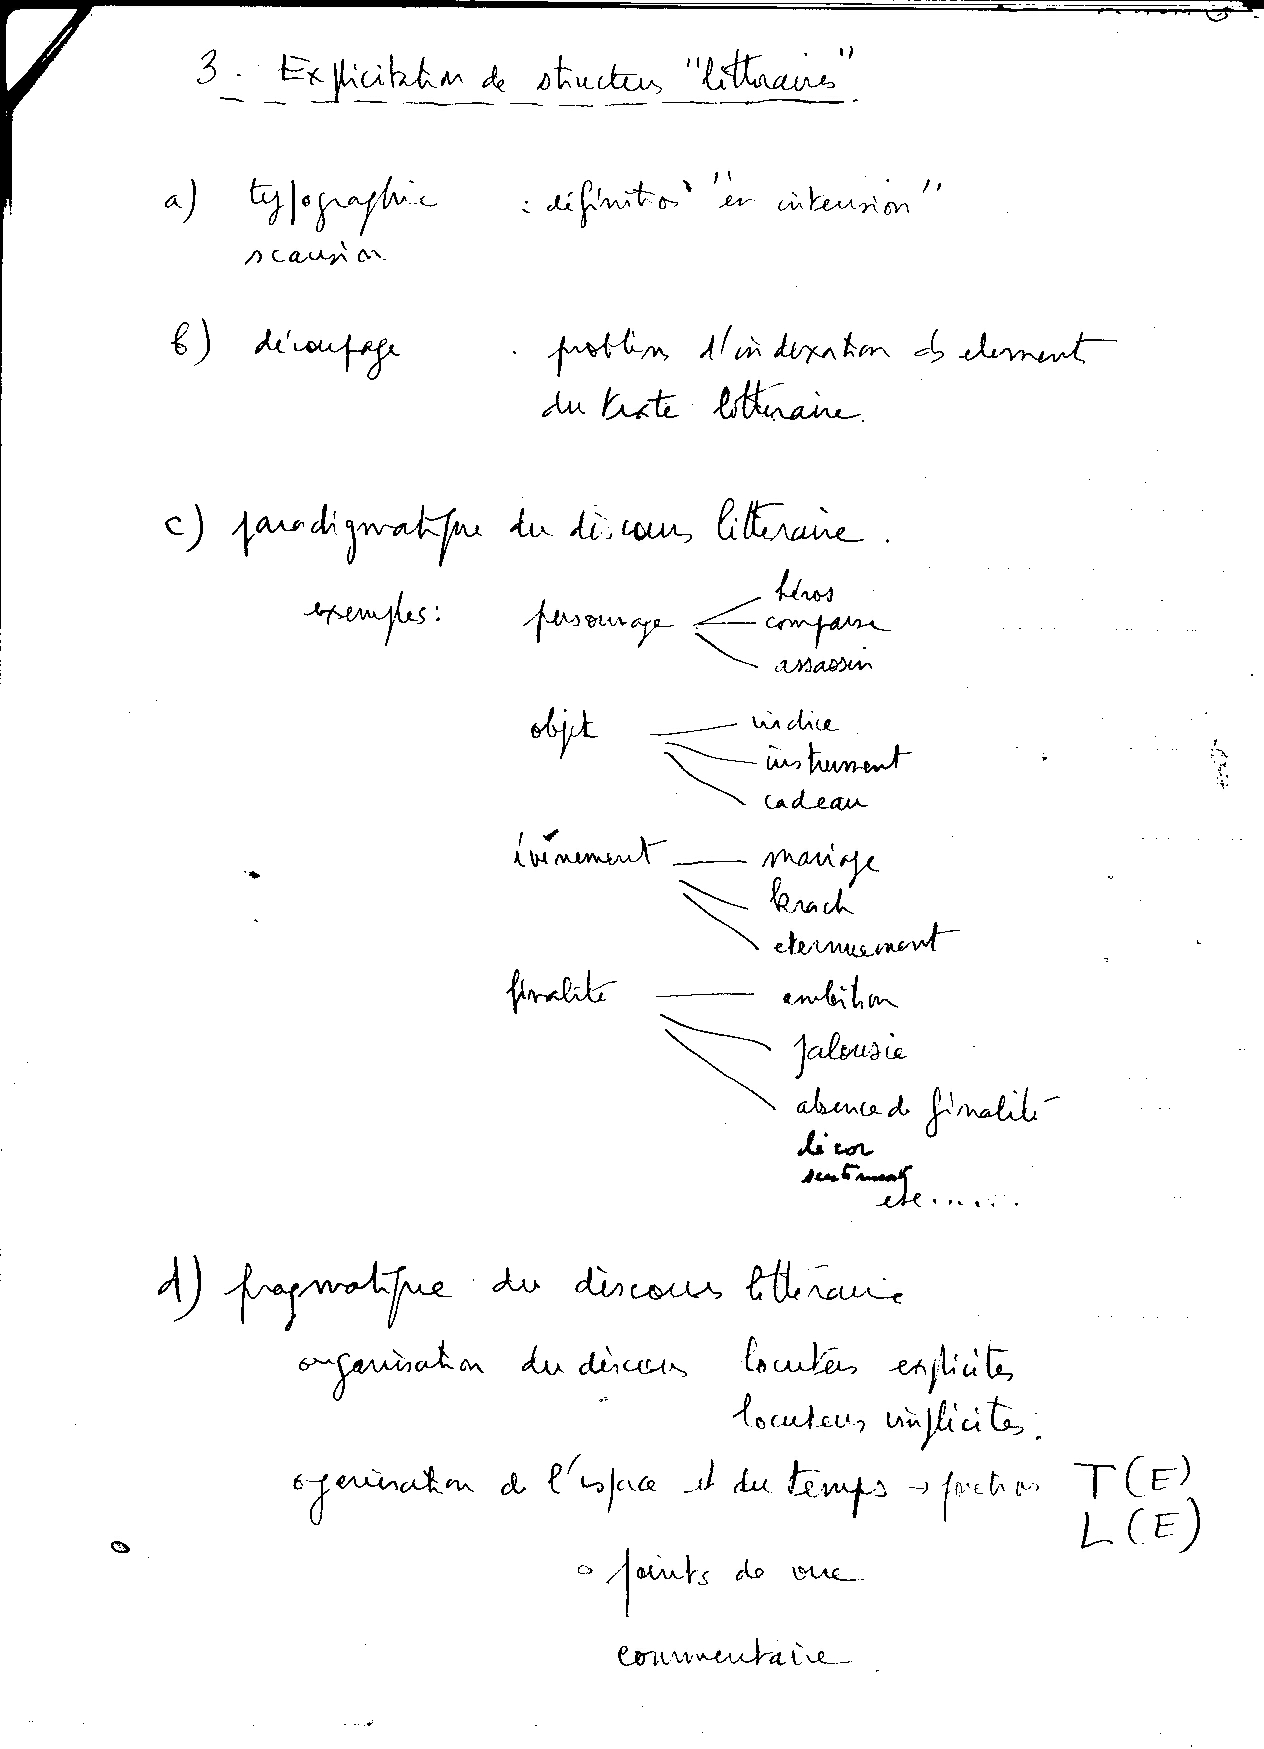 3. Explicitation de structures "littéraires"
a) typographie : définition "en intension"
scansion
b) découpage . problèmes d'indexation des element
du texte littéraire.
c) paradigmatique du discours littéraire.
exemples: personnage héros
comparse
assassin
objet indice
instrument
cadeau
évènement mariage
krach
eternuement
finalité ambition
jalousie
absence de finalité
décor
sentiment
etc......
d) pragmatique du discours littéraire
organisation du discours locuteurs explicites
locuteurs implicites.
organisation de l'espace et du temps → fonctions T(E)
L(E)
o points de vue
commentaire